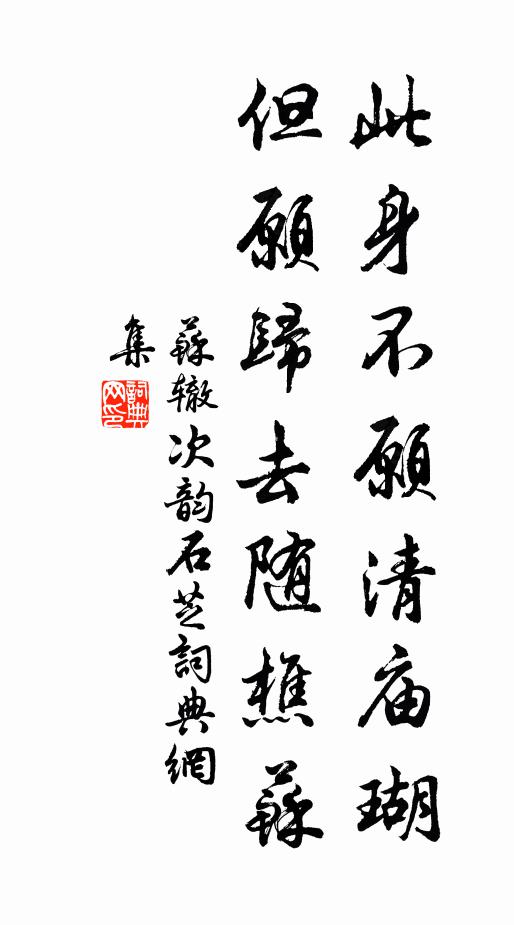 此身不願清庙瑚
但願歸去随樵蘇
蘇辙次韵石芝詞典網
集
詞典网印